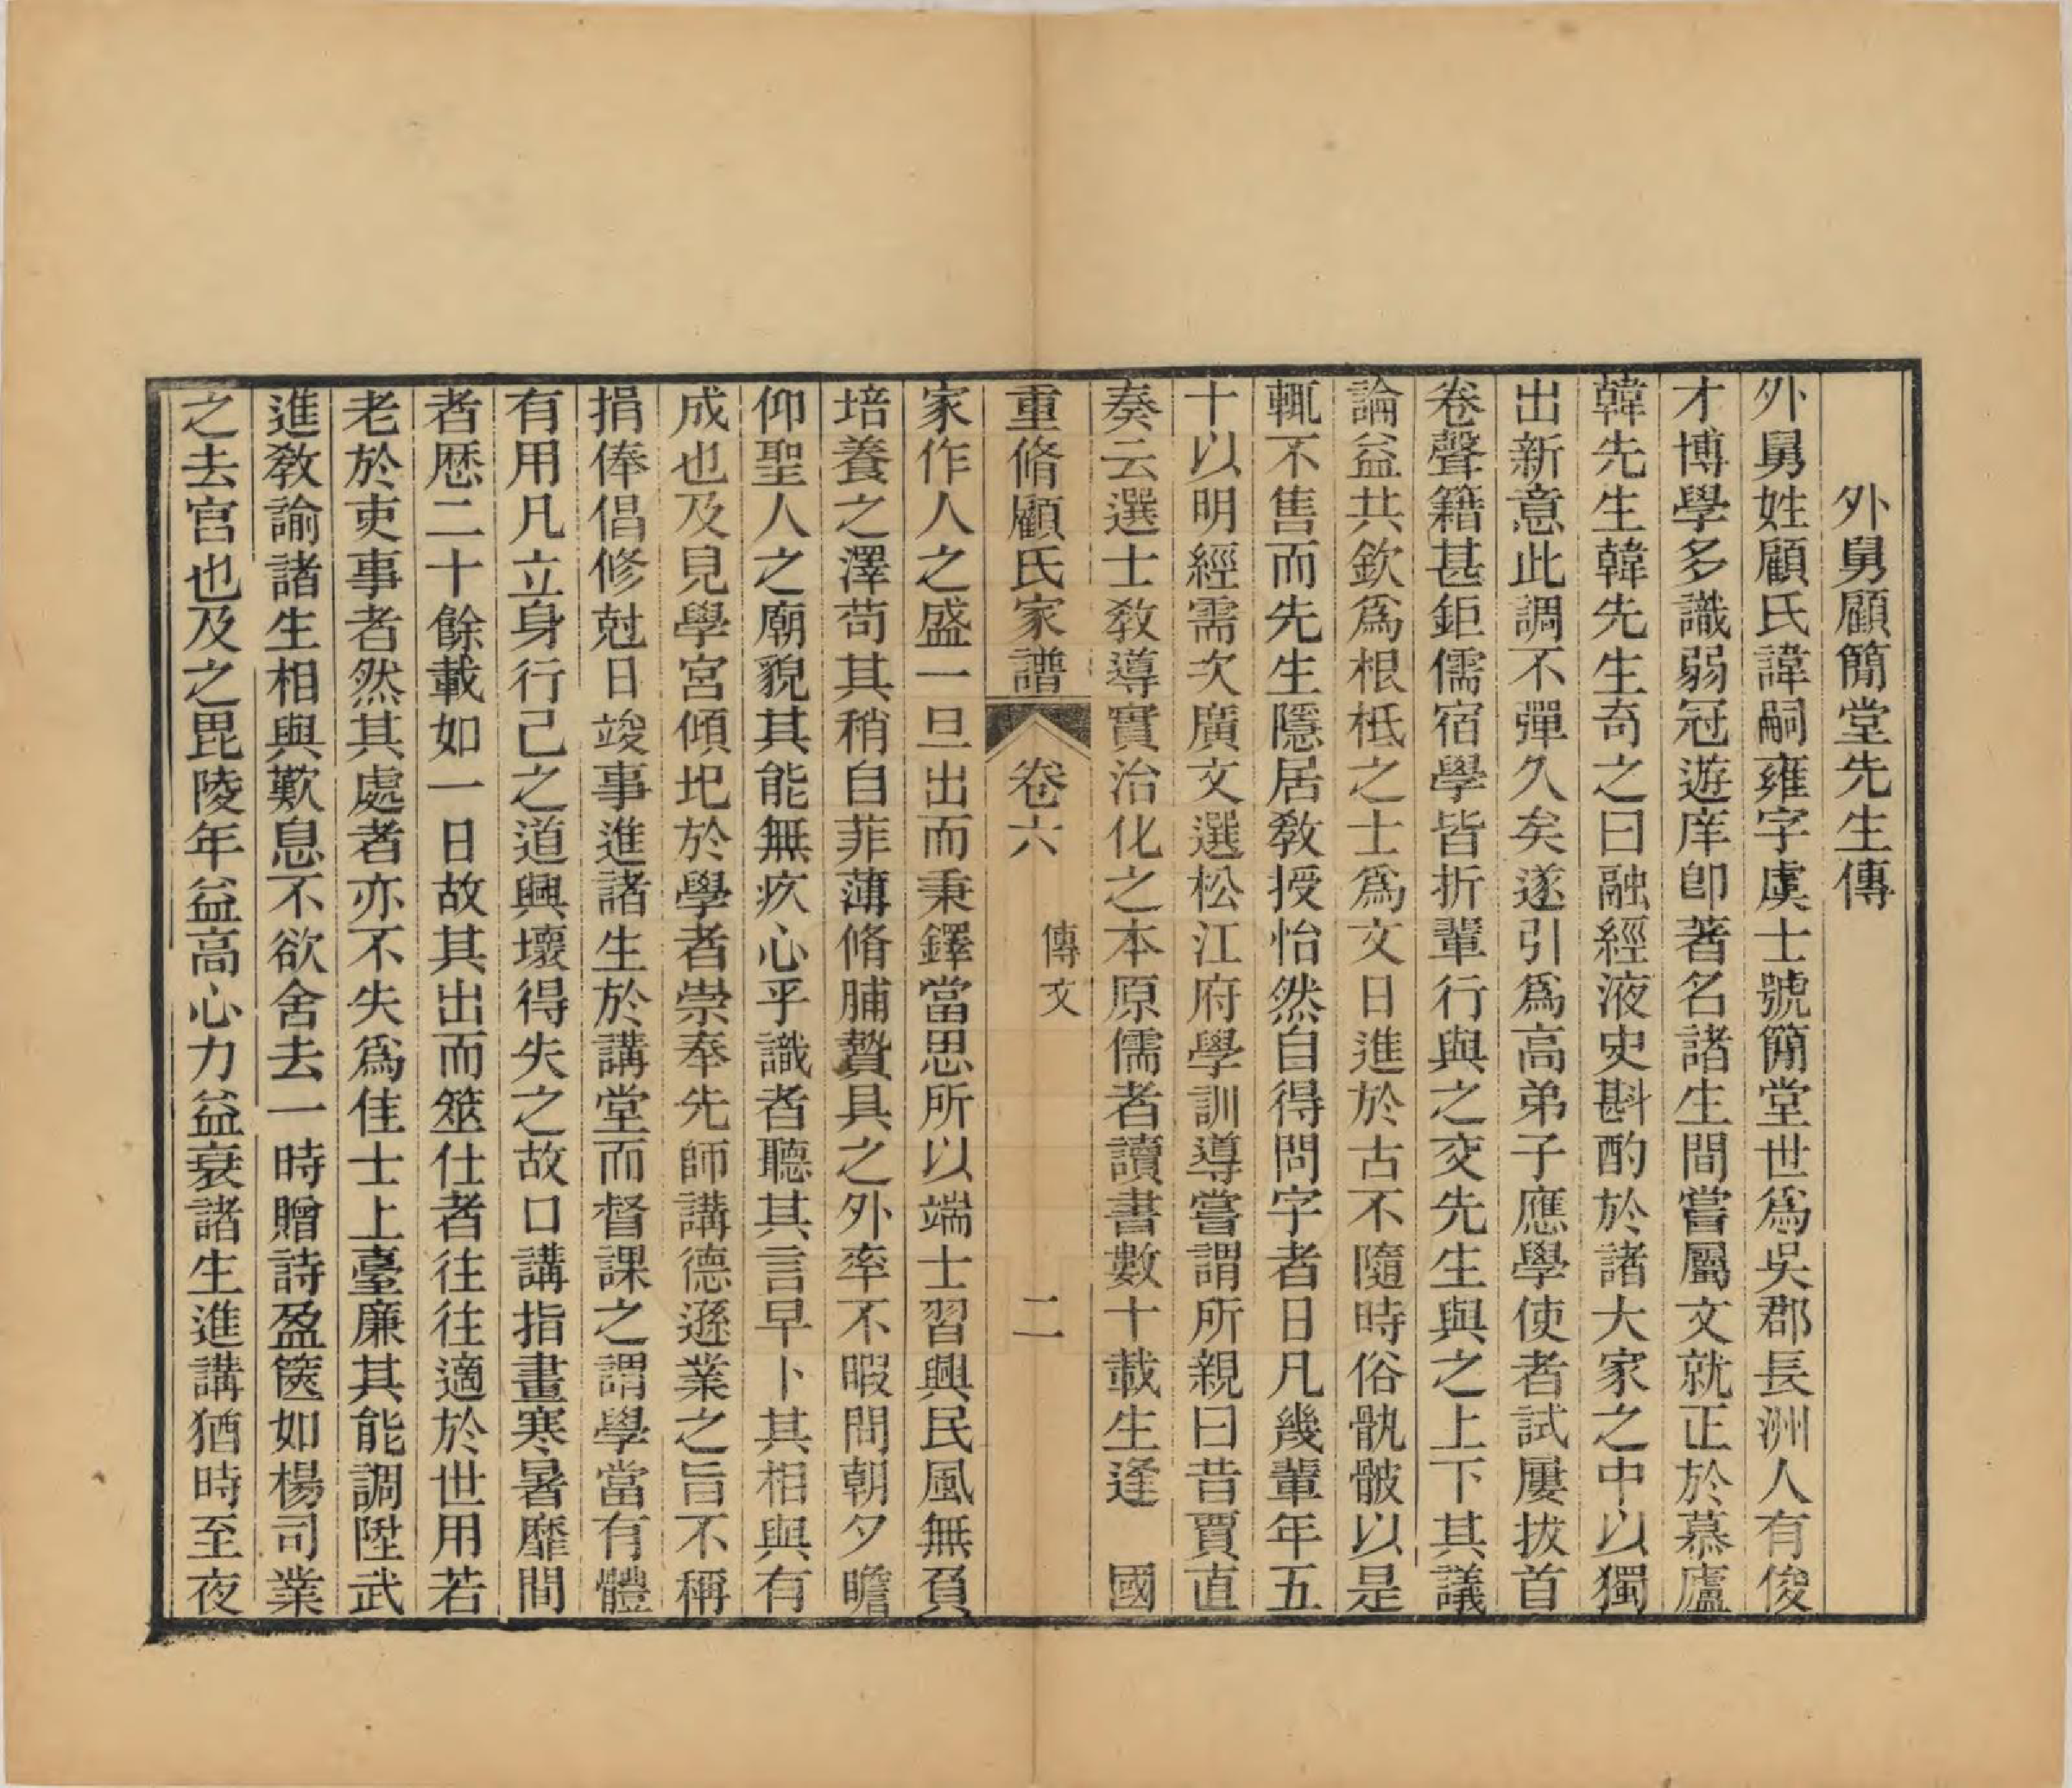 外舅顧簡堂先生傳
外舅姓顧氏諱嗣雍字虞士號簡堂世爲吳郡長洲人有俊
才博學多識弱冠遊庠卽著名諸生間嘗屬文就正於慕廬
韓先生韓先生奇之曰融經液史斟酌於諸大家之中以獨
出新意此調不彈久矣遂引爲高弟子應學使者試屢拔首
卷聲籍甚鉅儒宿學皆折輩行與之交先生與之上下其議
論益共欽爲根柢之士爲文日進於古不隨時俗骫骳以是
輒不售而先生隱居敎授怡然自得問字者日凡幾輩年五
十以明經需次廣文選松江府學訓導嘗謂所親曰昔賈直
奏云選士敎導實治化之本原儒者讀書數十載生逢　國
重脩顧氏家譜　卷六　傳文　二
家作人之盛一旦出而秉鐸當思所以端士習興民風無負
培養之澤苟其稍自菲薄脩脯贄具之外率不暇問朝夕瞻
仰聖人之廟貌其能無疚心乎識者聽其言早卜其相與有
成也及見學宮傾圯於學者崇奉先師講德遜業之旨不稱
捐俸倡修尅日竣事進諸生於講堂而督課之謂學當有體
有用凡立身行己之道興壞得失之故口講指畫寒暑靡間
者歷二十餘載如一日故其出而筮仕者往往適於世用若
老於吏事者然其處者亦不失爲佳士上臺廉其能調陞武
進敎諭諸生相與歎息不欲舍去一時贈詩盈篋如楊司業
之去官也及之毘陵年益高心力益衰諸生進講猶時至夜